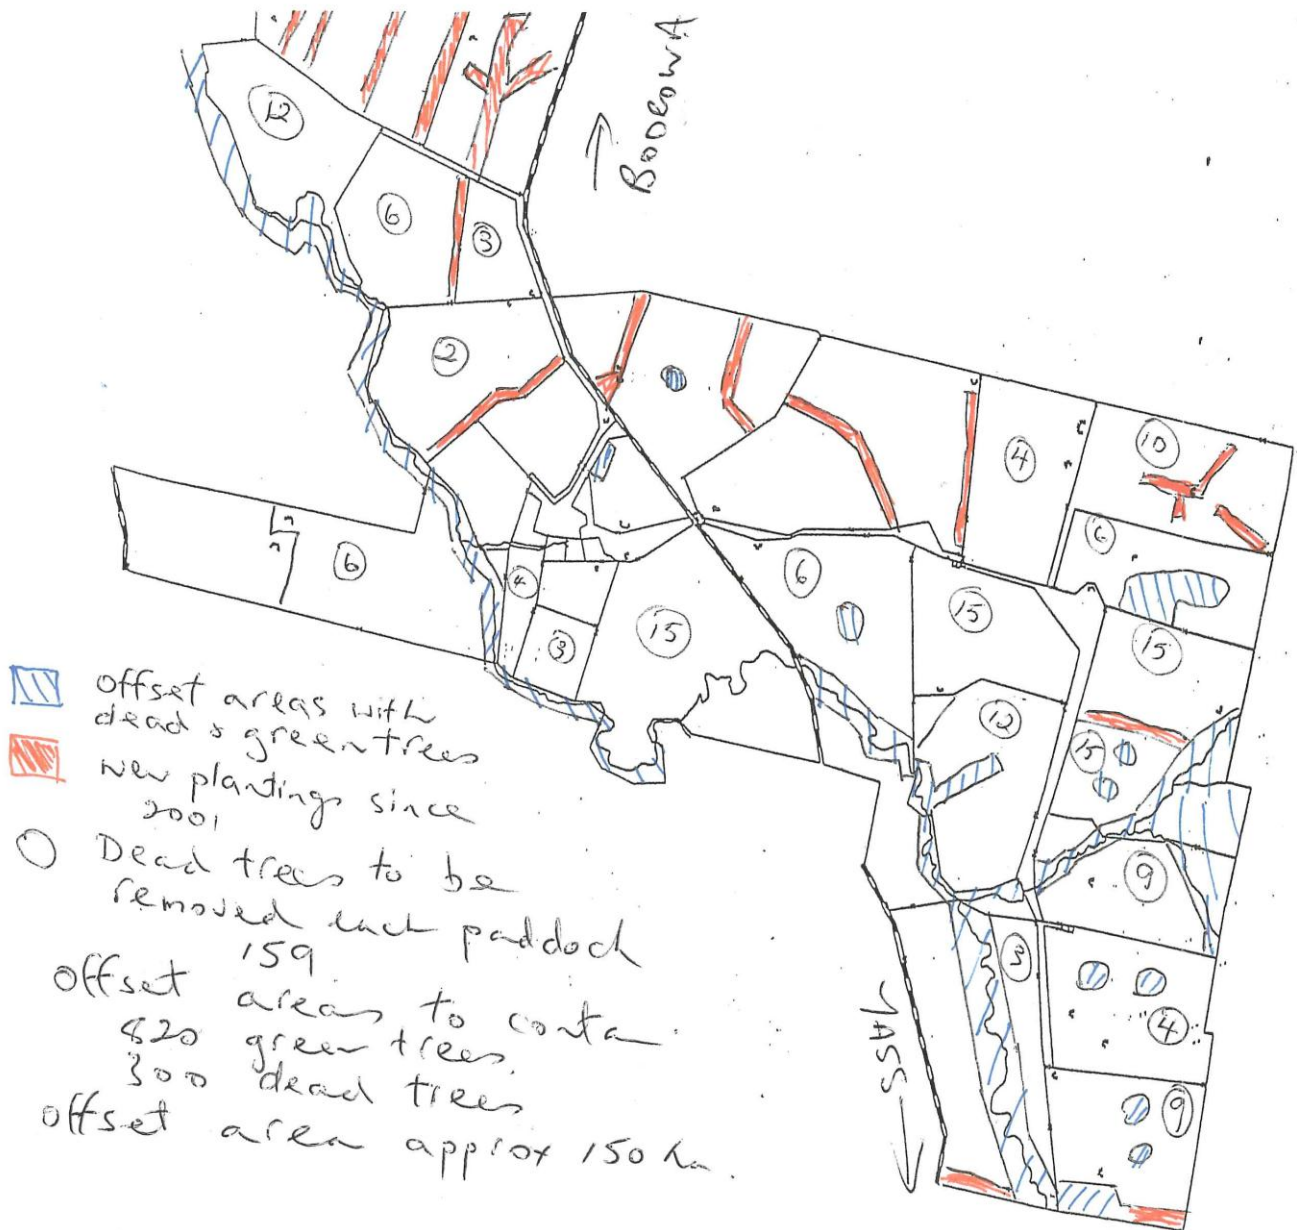 12
BOOROWA
6
3
2
4
10
6
6
6
4
15
3
15
15
12
15
offset areas with
dead & green trees
New plantings since
2001
Dead trees to be
removed each paddock
159
offset areas to conta
820 green trees
300 dead trees
offset area approx 150 ha.
9
3
4
YASS
9